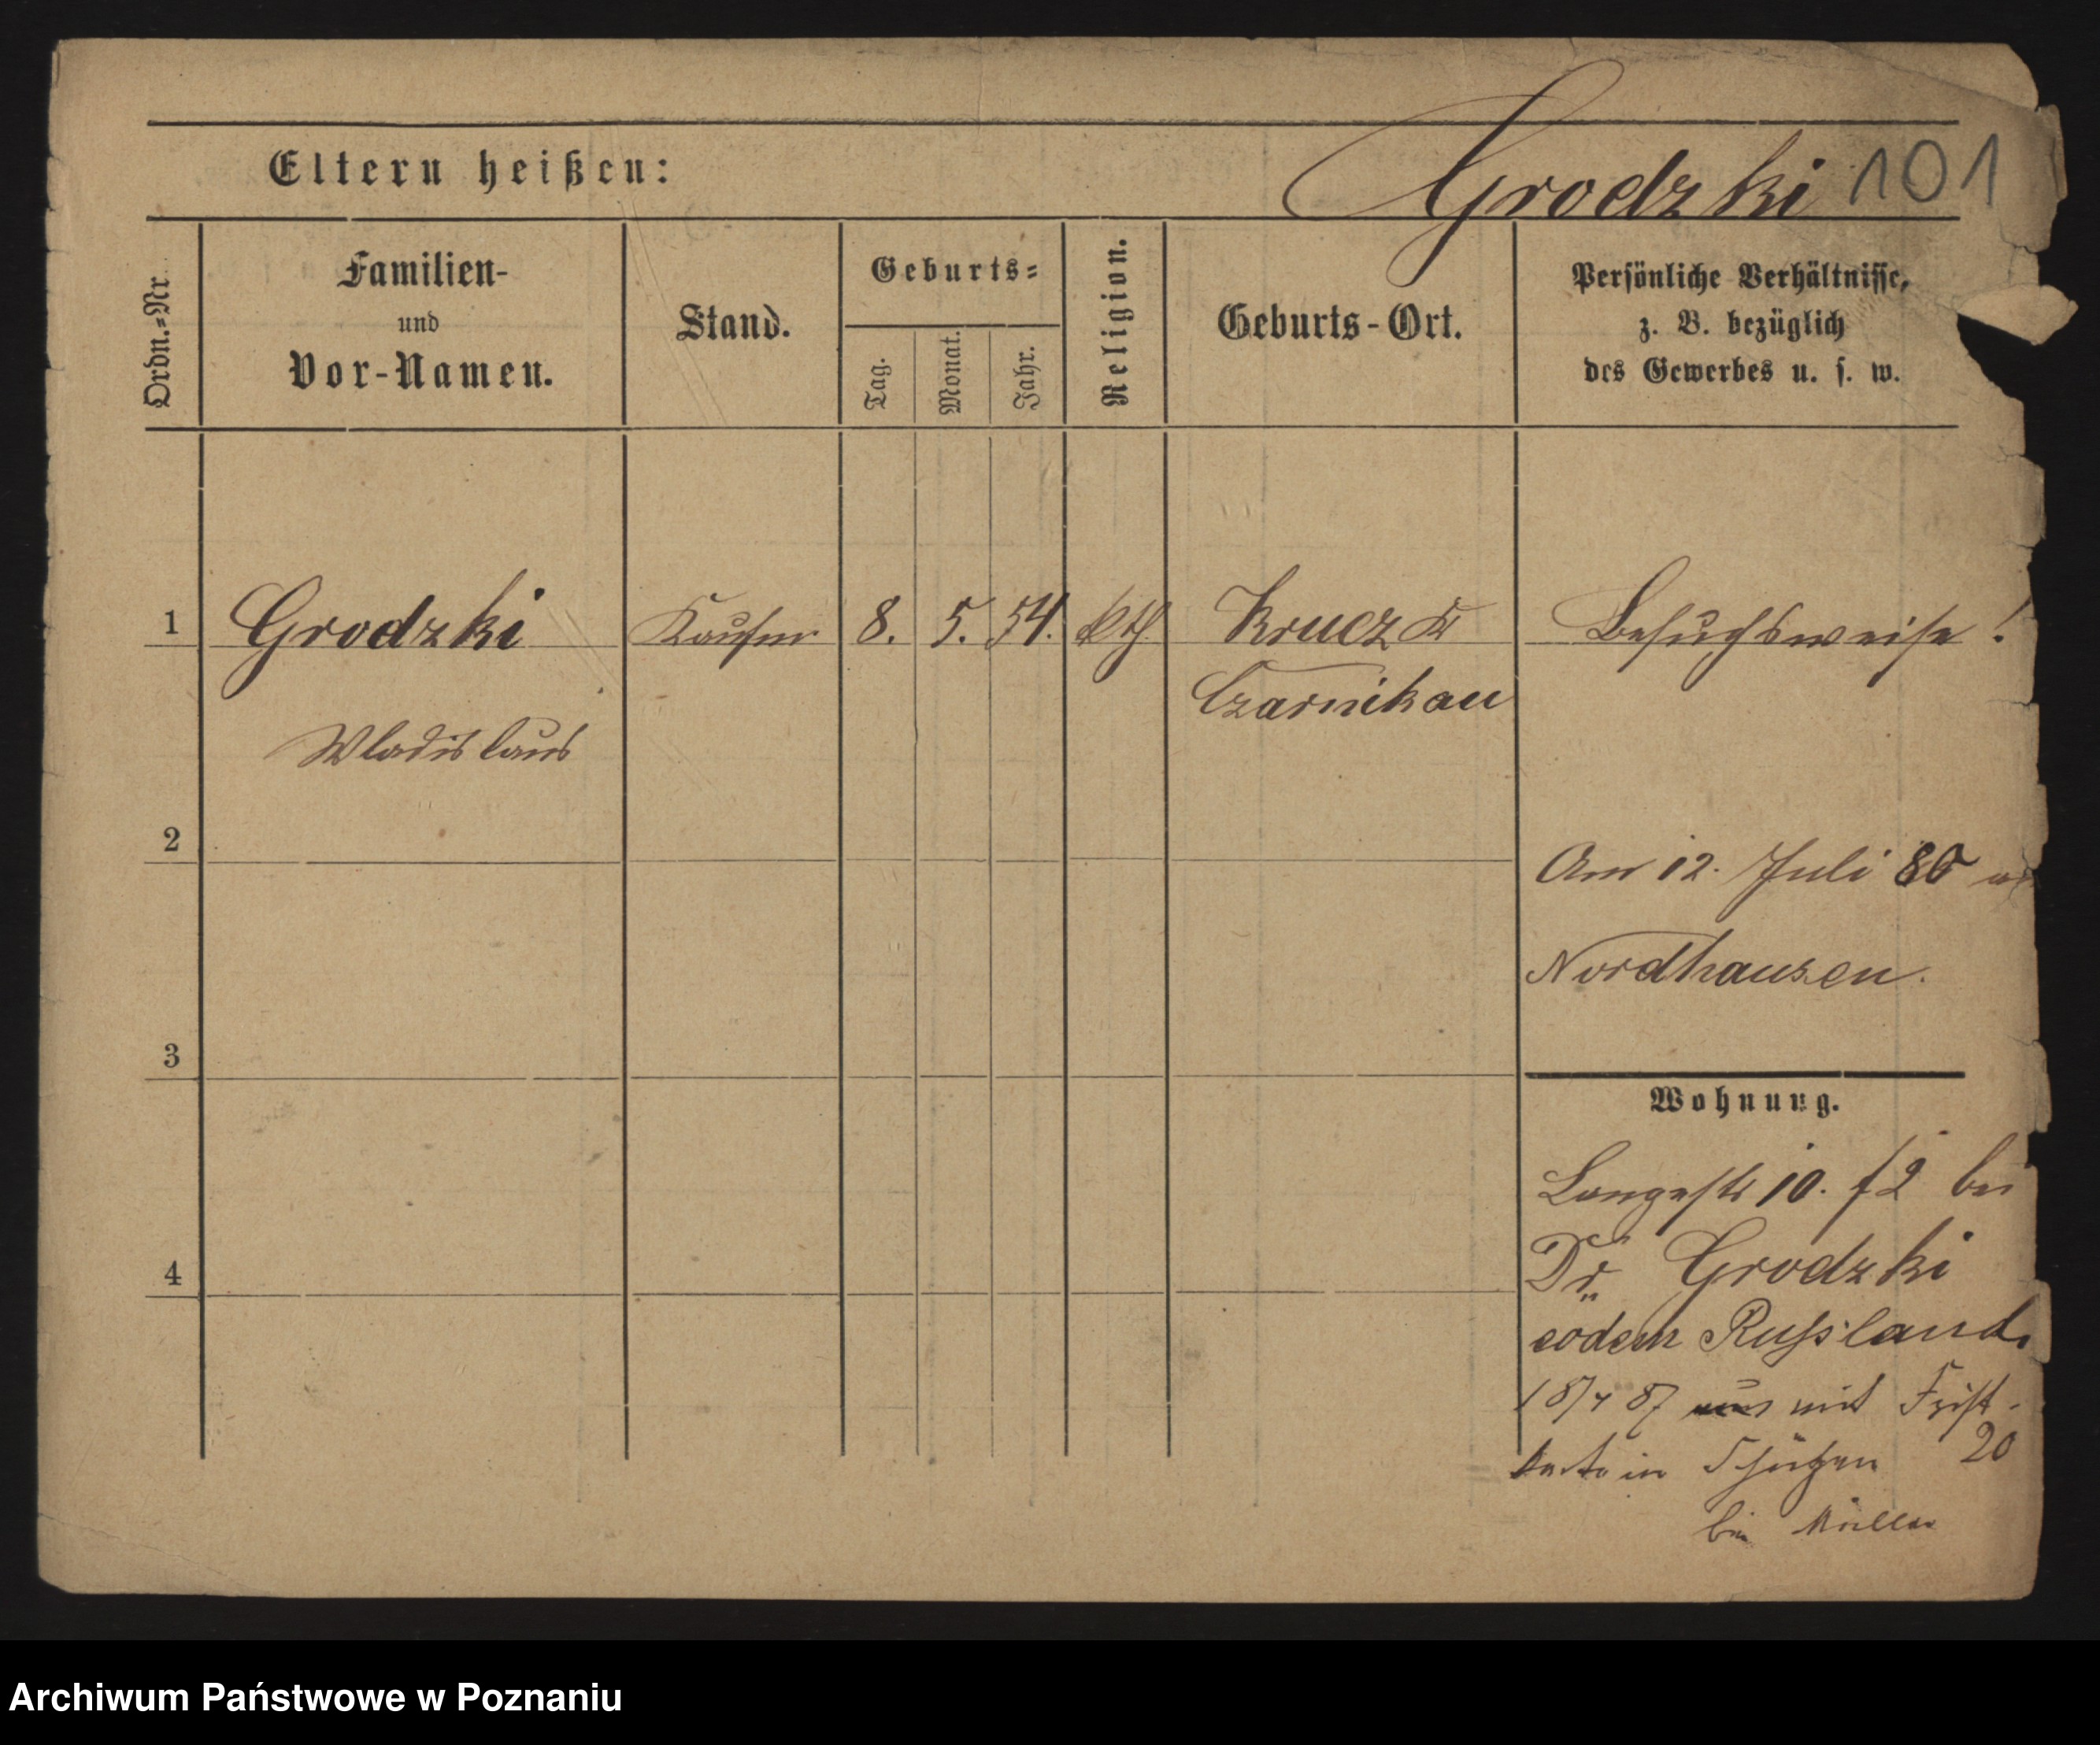 Eltern heißen: Grodzki 101
Ordn.=Nr.
Familien-
und
Vor-Namen.
Stand.
Geburts=
Tag.
Monat.
Jahr.
Religion.
Geburts-Ort.
Persönliche Verhältnisse,
z. B. bezüglich
des Gewerbes u. s. w.
1 Grodzki Kaufm 8. 5. 54. kth Krucz Kr Besuchsweise!
Czarnikau
Wladislaus
2
Am 12. Juli 80
Nordhausen.
3
Wohnung.
Langestr 10. f2 bei
Dr. Grodzki
4
eodem Russland.
18/4 87 mit Frist-
karte in Schützen 20
bei Müller
Archiwum Państwowe w Poznaniu